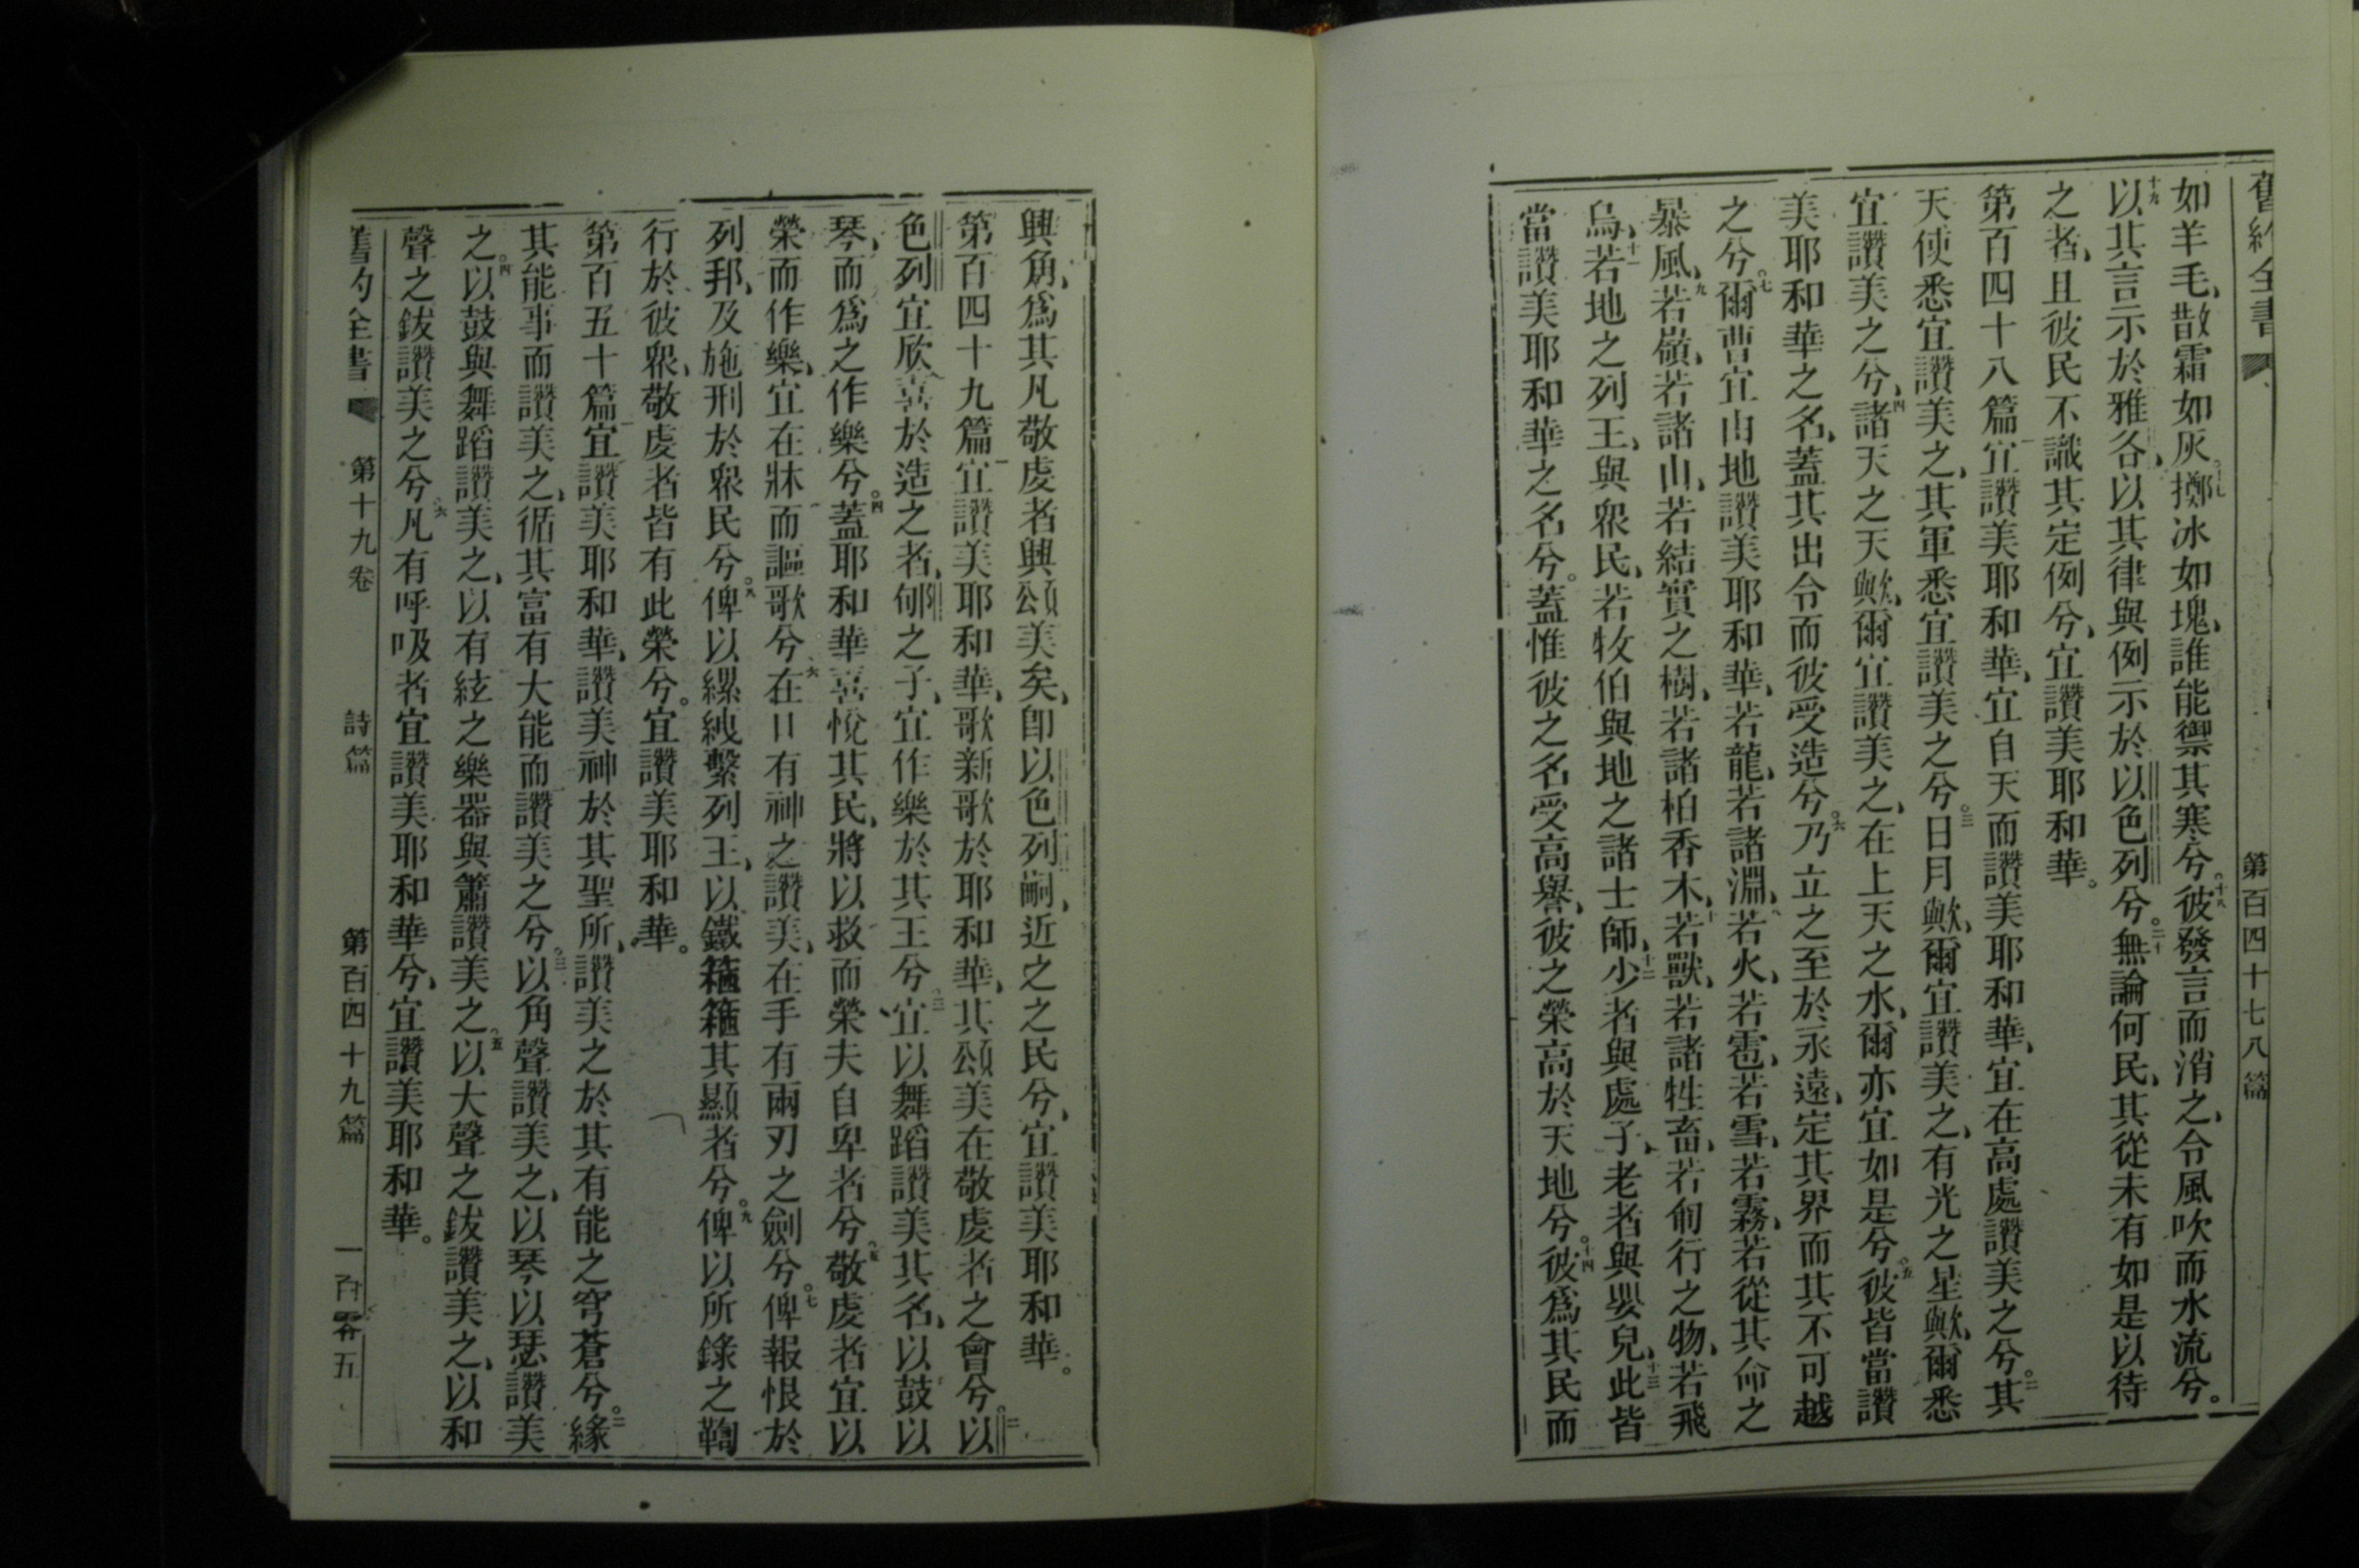 舊約全書
第百四十七八篇
如羊毛、散霜如灰。十七擲冰如塊、誰能禦其寒兮。十八彼發言而消之、令風吹而水流兮。
十九以其言示於雅各、以其律與例示於以色列兮。二十無論何民、其從未有如是以待
之者、且彼民不識其定例兮、宜讚美耶和華。
第百四十八篇一宜讚美耶和華、宜自天而讚美耶和華、宜在高處讚美之兮。二其
天使悉宜讚美之、其軍悉宜讚美之兮。三日月歟、爾宜讚美之、有光之星歟、爾悉
宜讚美之兮、四諸天之天歟、爾宜讚美之、在上天之水、爾亦宜如是兮。五彼皆當讚
美耶和華之名、蓋其出令而彼受造兮。六乃立之至於永遠、定其界而其不可越
之兮。七爾曹宜由地讚美耶和華、若龍、若諸淵、八若火、若雹、若雪、若霧、若從其命之
暴風、九若嶺、若諸山、若結實之樹、若諸柏香木、十若獸、若諸牲畜、若匍行之物、若飛
鳥、十一若地之列王、與眾民、若牧伯與地之諸士師、十二少者與處子、老者與嬰兒、十三此皆
當讚美耶和華之名兮。蓋惟彼之名受高舉、彼之榮高於天地兮。十四彼爲其民而
興角、爲其凡敬虔者興頌美矣、卽以色列嗣、近之之民兮、宜讚美耶和華。
第百四十九篇一宜讚美耶和華、歌新歌於耶和華、其頌美在敬虔者之會兮。二以
色列宜欣喜於造之者、郇之子、宜作樂於其王兮、三宜以舞蹈讚美其名、以鼓以
琴、而爲之作樂兮。四蓋耶和華喜悅其民、將以救而榮夫自卑者兮、五敬虔者宜以
榮而作樂、宜在牀而謳歌兮、六在口有神之讚美、在手有兩刃之劍兮。七俾報恨於
列邦、及施刑於眾民兮。八俾以縲絏繫列王、以鐵箍箍其顯者兮。九俾以所錄之鞫
行於彼眾、敬虔者皆有此榮兮。宜讚美耶和華。
第百五十篇一宜讚美耶和華、讚美神於其聖所、讚美之於其有能之穹蒼兮。二緣
其能事而讚美之、循其富有大能而讚美之兮。三以角聲讚美之、以琴以瑟讚美
之。四以鼓與舞蹈讚美之、以有絃之樂器與簫讚美之、五以大聲之鈸讚美之、以和
聲之鈸讚美之兮、六凡有呼吸者宜讚美耶和華兮、宜讚美耶和華。
舊約全書 第十九卷 詩篇 第百四十九篇 一百零五